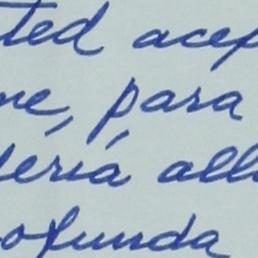 ted acep
me, para
ería all
ofunda